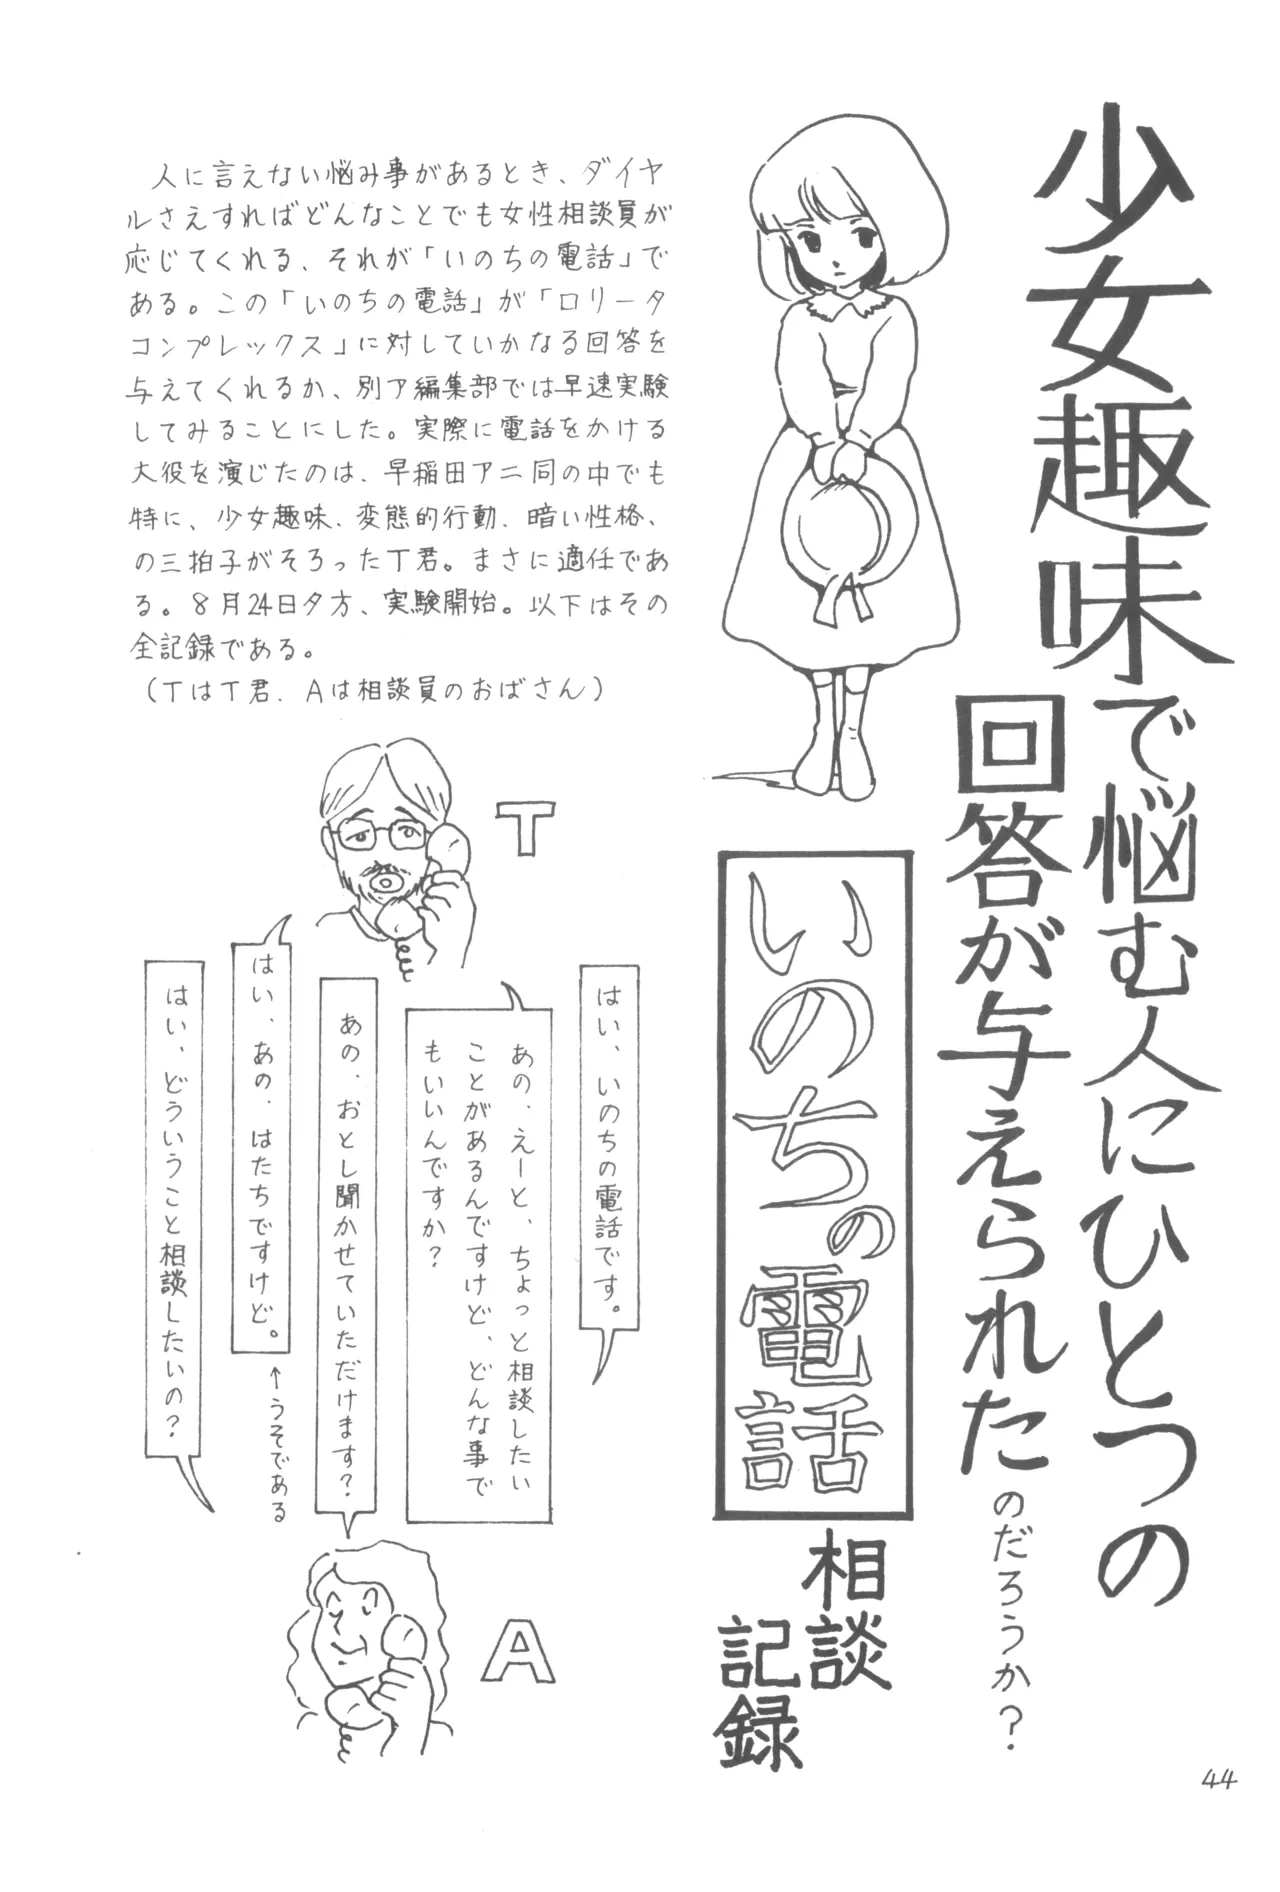 少女趣味で悩む人にひとつの
回答が与えられたのだろうか?
いのちの電話
相談
記録
人に言えない悩み事があるとき、ダイヤ
ルさえすればどんなことでも女性相談員が
応じてくれる、それが「いのちの電話」で
ある。この「いのちの電話」が「ロリータ
コンプレックス」に対していかなる回答を
与えてくれるか、別ア編集部では早速実験
してみることにした。実際に電話をかける
大役を演じたのは、早稲田アニ同の中でも
特に、少女趣味、変態的行動、暗い性格、
の三拍子がそろったT君。まさに適任であ
る。8月24日夕方、実験開始。以下はその
全記録である。
(TはT君、Aは相談員のおばさん)
T
はい、いのちの電話です。
あの、えーと、ちょっと相談したい
ことがあるんですけど、どんな事で
もいいんですか?
あの、おとし聞かせていただけます?
はい、あの、はたちですけど。
↑うそである
はい、どういうこと相談したいの?
A
44